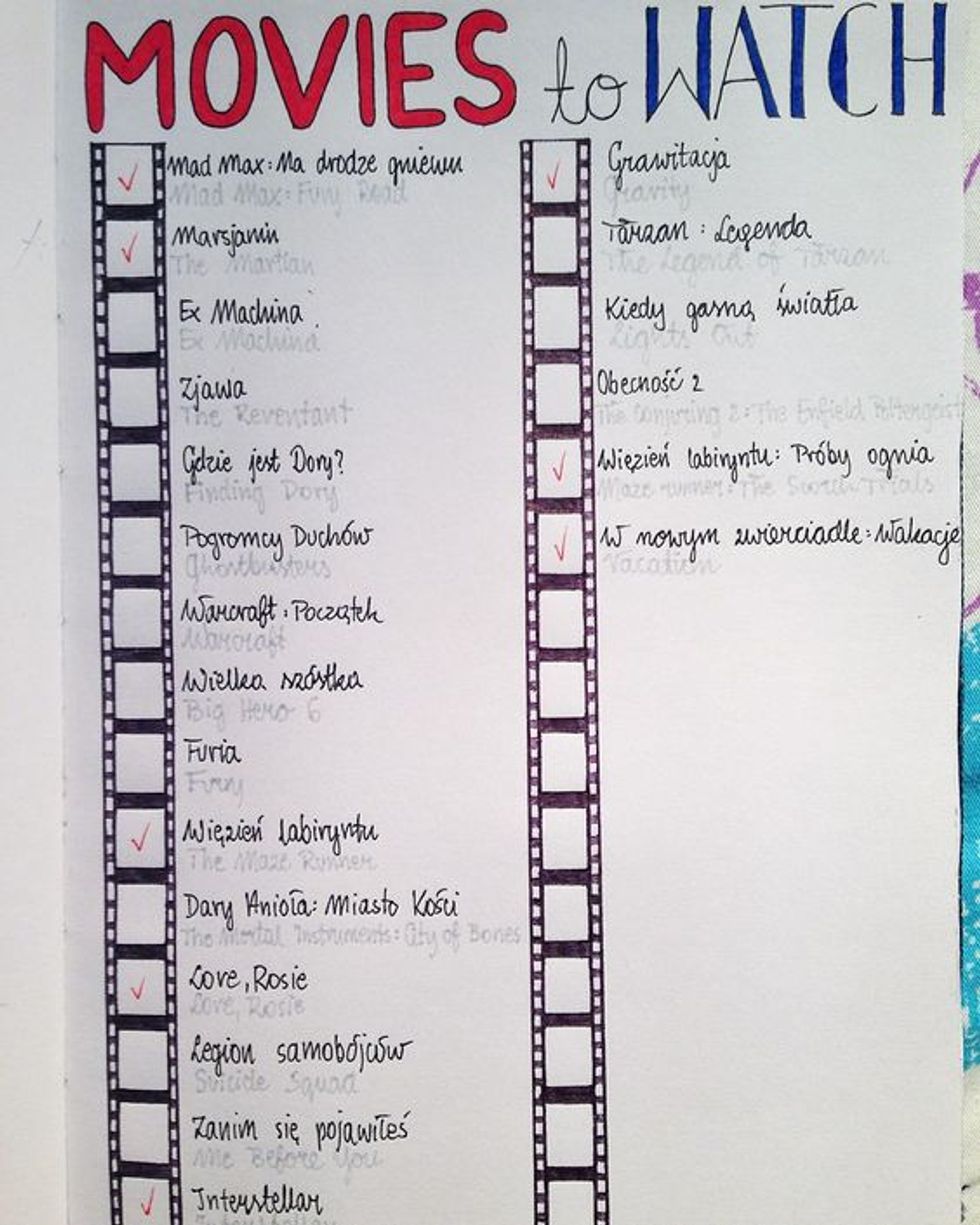 MOVIES to WATCH
Mad Max: Na drodze gniewu
Mad Max: Fury Road
Marsjanin
The Martian
Ex Machina
Ex Machina
Zjawa
The Reventant
Gdzie jest Dory?
Finding Dory
Pogromcy Duchów
Ghostbusters
Warcraft: Początek
Warcraft
Wielka szóstka
Big Hero 6
Furia
Fury
Więzień labiryntu
The Maze Runner
Dary Anioła: Miasto Kości
The Mortal Instruments: City of Bones
Love, Rosie
Love, Rosie
Legion samobójców
Suicide Squad
Zanim się pojawiłeś
Me Before You
Interstellar
Interstellar
Grawitacja
Gravity
Tarzan: Legenda
The Legend of Tarzan
Kiedy gasną światła
Lights Out
Obecność 2
The Conjuring 2: The Enfield Poltergeist
Więzień labiryntu: Próby ognia
Maze runner: The Scorch Trials
W nowym zwierciadle: Wakacje
Vacation